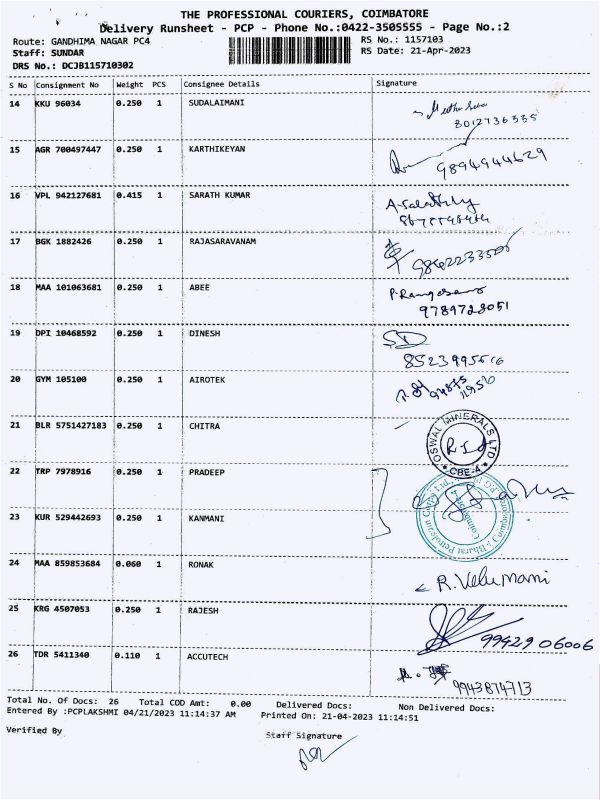 THE PROFESSIONAL COURIERS, COIMBATORE
Delivery Runsheet - PCP - Phone No.:0422-3505555 - Page No.:2
Route: GANDHIMA NAGAR PC4 RS No.: 1157103
Staff: SUNDAR RS Date: 21-Apr-2023
DRS No.: DCJB115710302
S No Consignment No Weight PCS Consignee Details Signature
14 KKU 96034 0.250 1 SUDALAIMANI
8012736535
15 AGR 700497447 0.250 1 KARTHIKEYAN
9894944629
16 VPL 942127681 0.415 1 SARATH KUMAR
17 BGK 1882426 0.250 1 RAJASARAVANAM
18 MAA 101063681 0.250 1 ABEE
9789728051
19 DPI 10468592 0.250 1 DINESH SD
20 GYM 105100 0.250 1 AIROTEK
21 BLR 5751427183 0.250 1 CHITRA
OSWAL MINERALS LTD
* CBE-4 *
22 TRP 7978916 0.250 1 PRADEEP
23 KUR 529442693 0.250 1 KANMANI
24 MAA 859853684 0.060 1 RONAK
R. Velumani
25 KRG 4507053 0.250 1 RAJESH
9942906006
26 TDR 5411340 0.110 1 ACCUTECH
9943874713
Total No. Of Docs: 26 Total COD Amt: 0.00 Delivered Docs: Non Delivered Docs:
Entered By :PCPLAKSHMI 04/21/2023 11:14:37 AM Printed On: 21-04-2023 11:14:51
Verified By Staff Signature